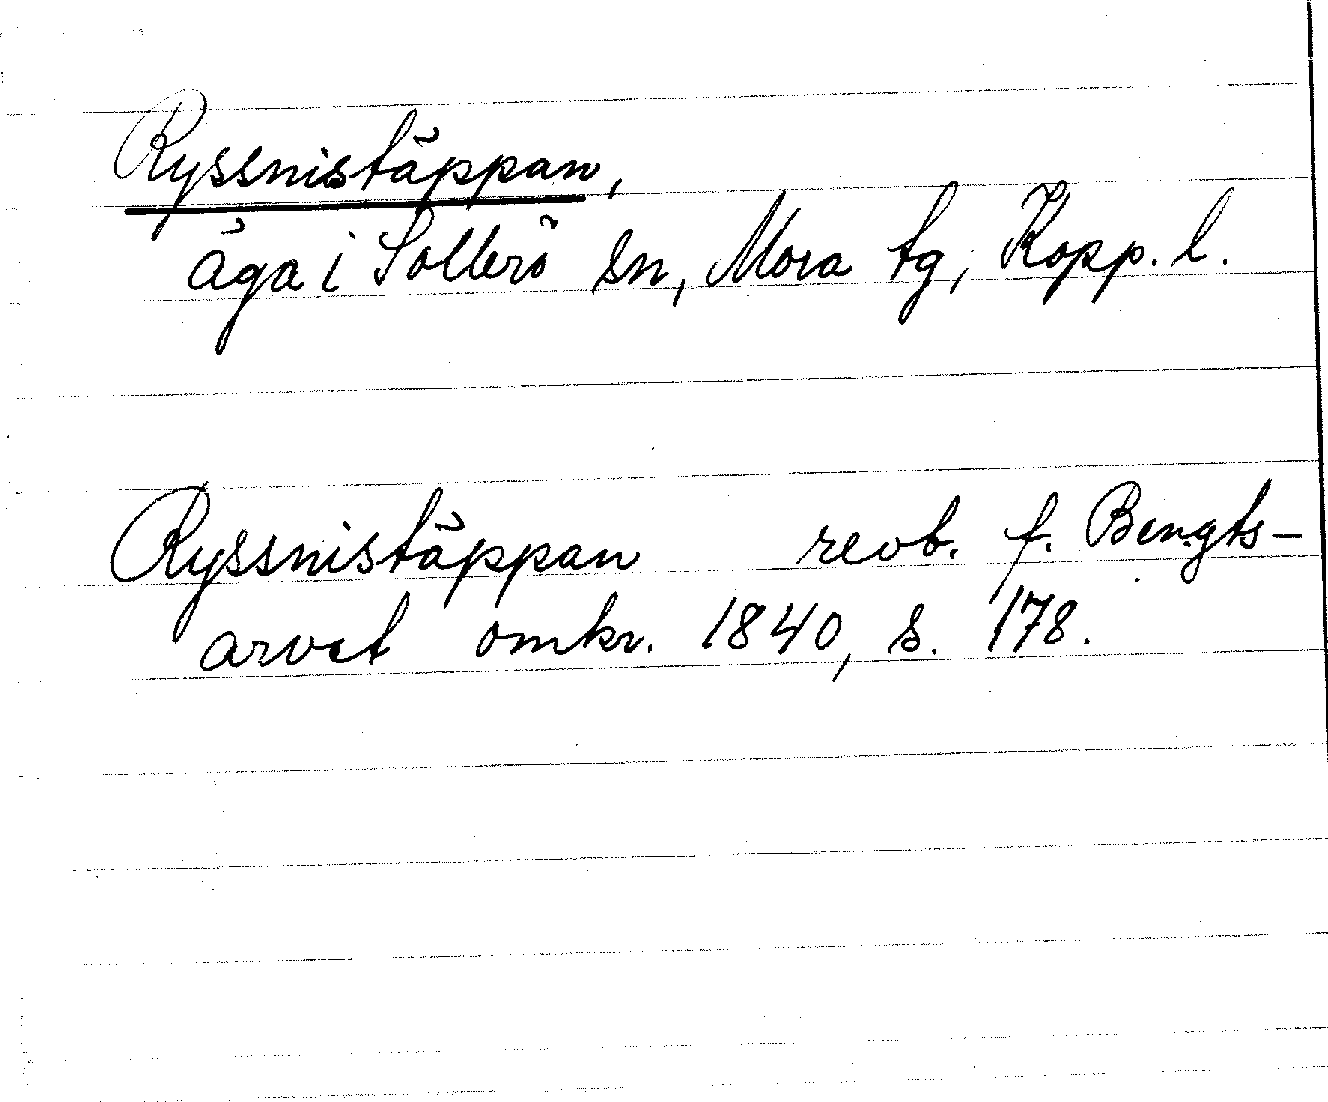 Ryssnistäppan,
äga i Sollerö sn, Mora tg, Kopp. l.
Ryssnistäppan revb. f. Bengts-
arvet omkr. 1840, s. 178.